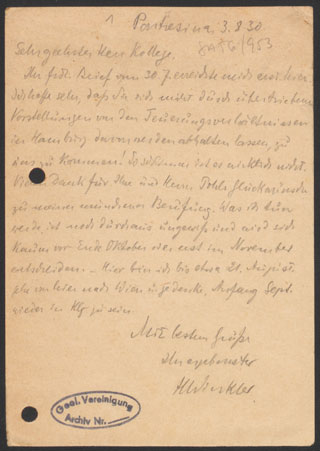 Pontresina, 3. 8. 30
Sehr geehrter Herr Kollege.
Ihr frdl. Brief vom 30. 7. erreichte mich erst hier.
Ich hoffe sehr, daß Sie sich nicht durch übertriebene
Vorstellungen von den Teuerungsverhältnissen
in Hamburg davon werden abhalten lassen, zu
uns zu kommen! So schlimm ist es wirklich nicht.
Vielen Dank für Ihre und Herrn Glückwünsche
zu meiner Berufung. Was ich tun
werde, ist noch durchaus ungewiss und wird sich
kaum vor Ende Oktober oder erst im November
entscheiden. – Hier bin ich bis etwa 21. August,
gehe von hier nach Wien u. gedenke, Anfang Sept.
wieder in zu sein.
Mit besten Grüßen
Ihr ergebenster
Geol. Vereinigung
Archiv Nr.